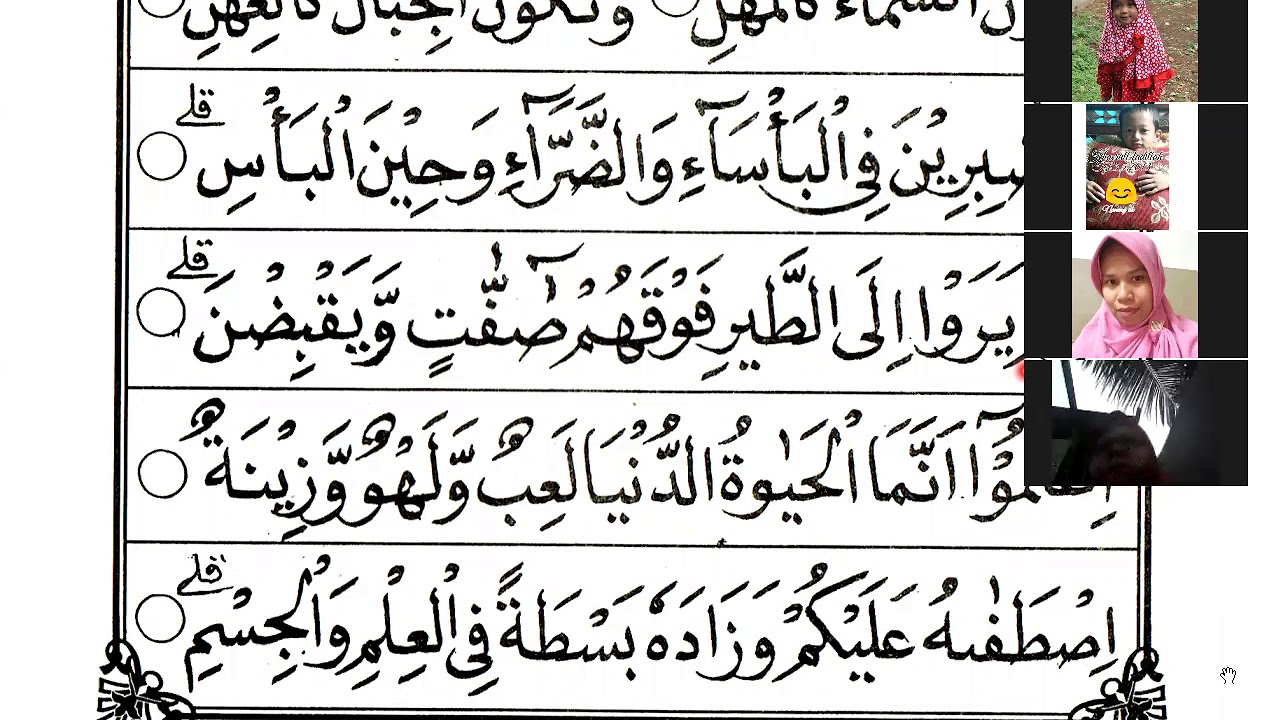 السَّمَاءُ كَالْمُهْلِ وَتَكُوْنُ الْجِبَالُ كَالْعِهْنِ
فِى الْبَأْسَآءِ وَالضَّرَّآءِ وَحِيْنَ الْبَأْسِ قلے
يَرَوْا اِلَى الطَّيْرِ فَوْقَهُمْ صٰٓفّٰتٍ وَّيَقْبِضْنَ قلے
اِعْلَمُوْٓا اَنَّمَا الْحَيٰوةُ الدُّنْيَا لَعِبٌ وَّلَهْوٌ وَّزِيْنَةٌ
اِصْطَفٰىهُ عَلَيْكُمْ وَزَادَهٗ بَسْطَةً فِى الْعِلْمِ وَالْجِسْمِ قلے